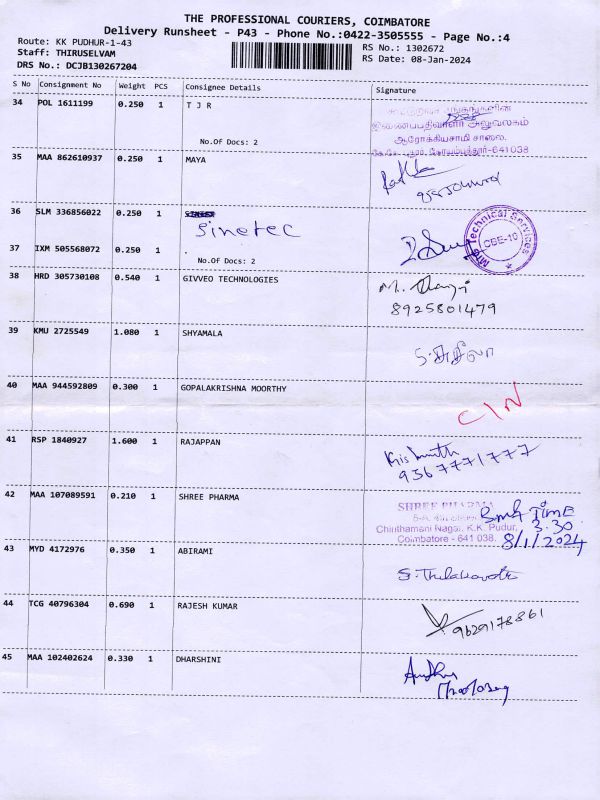 THE PROFESSIONAL COURIERS, COIMBATORE
Delivery Runsheet - P43 - Phone No.:0422-3505555 - Page No.:4
Route: KK PUDHUR-1-43
RS No.: 1302672
Staff: THIRUSELVAM
RS Date: 08-Jan-2024
DRS No.: DCJB130267204
S No Consignment No Weight PCS Consignee Details Signature
34 POL 1611199 0.250 1 T J R
இணைப்பதிவாளர் அலுவலகம்
ஆரோக்கியசாமி சாலை.
No.Of Docs: 2
கே.கே. புதூர், கோயம்புத்தூர்-641038
35 MAA 862610937 0.250 1 MAYA
36 SLM 336856022 0.250 1
Sinetec
Technical Services
CBE-10
37 IXM 505568072 0.250 1
No.Of Docs: 2
38 HRD 305730108 0.540 1 GIVVEO TECHNOLOGIES
8925801479
39 KMU 2725549 1.080 1 SHYAMALA
40 MAA 944592809 0.300 1 GOPALAKRISHNA MOORTHY
C/N
41 RSP 1840927 1.600 1 RAJAPPAN
9367771777
42 MAA 107089591 0.210 1 SHREE PHARMA
SHREE PHARMA
TIME
3.30
Chinthamani Nagar, K.K. Pudur,
Coimbatore - 641 038.
8/1/2024
43 MYD 4172976 0.350 1 ABIRAMI
44 TCG 40796304 0.690 1 RAJESH KUMAR
9629178861
45 MAA 102402624 0.330 1 DHARSHINI